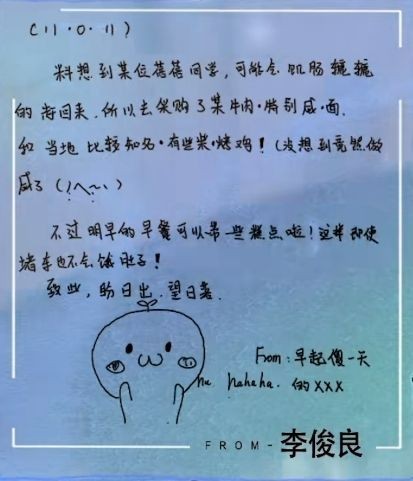 (11·0·11)
料想到某位蓓蓓同学，可能会饥肠辘辘
的海回来，所以去采购了某牛肉·特别咸·面，
和当地比较知名·有些柴·烤鸡！(没想到竟然做
咸了
不过明早的早餐可以带一些糕点啦！这样即使
堵车也不会饿肚子！
致此，盼日出，望日落。
From：早起傻一天
ha hahaha. 的XXX
FROM-李俊良